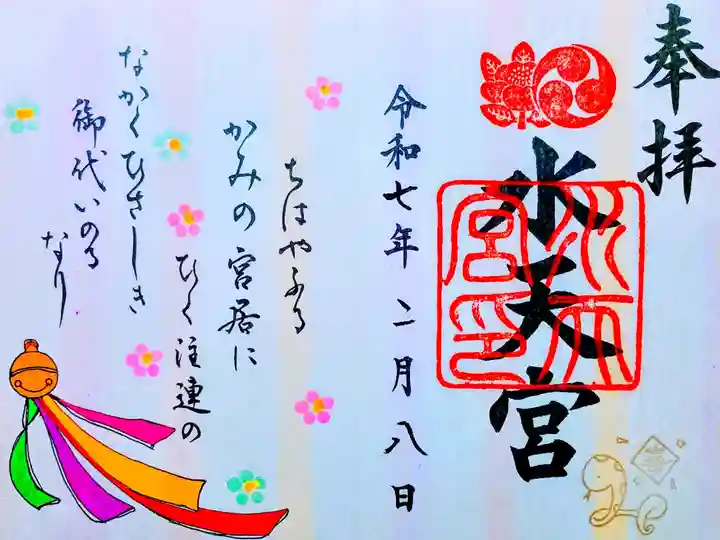 奉拝
水天宮
水天宮印
令和七年二月八日
ちはやふる
かみの宮居に
ひく注連の
なかくひさしき
御代いのる
なり